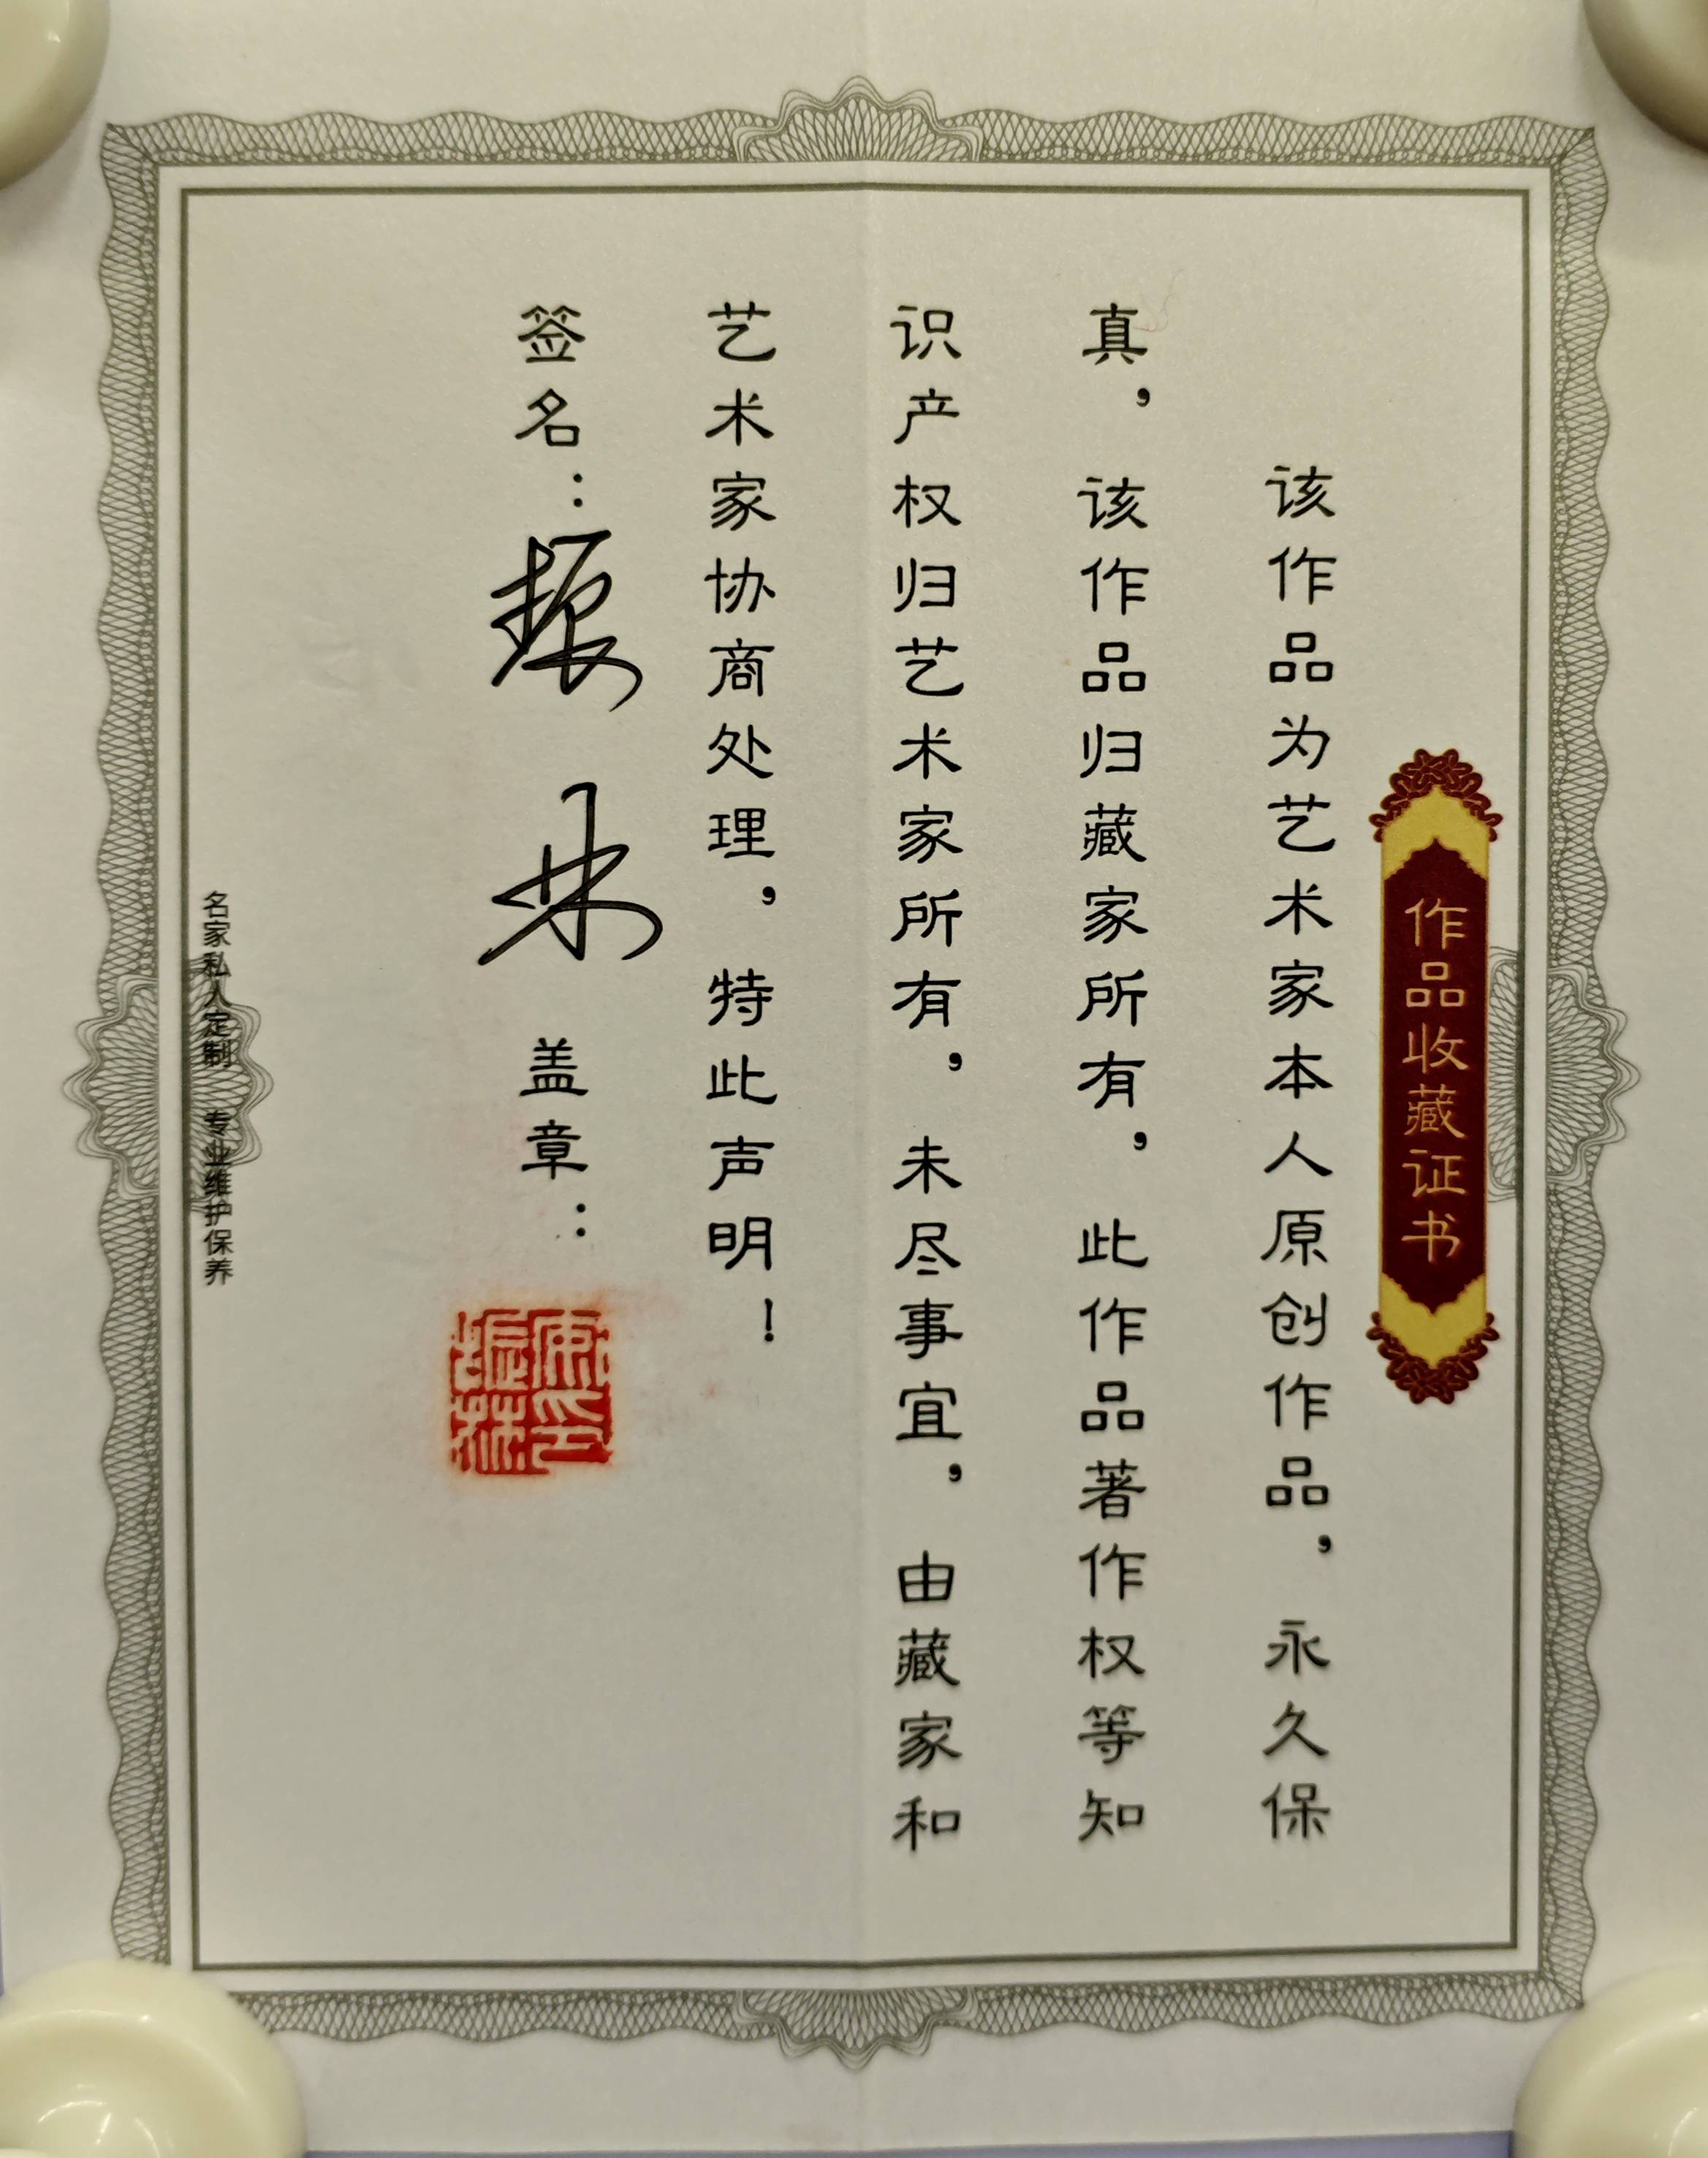 作品收藏证书
该作品为艺术家本人原创作品，永久保
真，该作品归藏家所有，此作品著作权等知
识产权归艺术家所有，未尽事宜，由藏家和
艺术家协商处理，特此声明！
签名：振林 盖章：
名家私人定制 专业维护保养